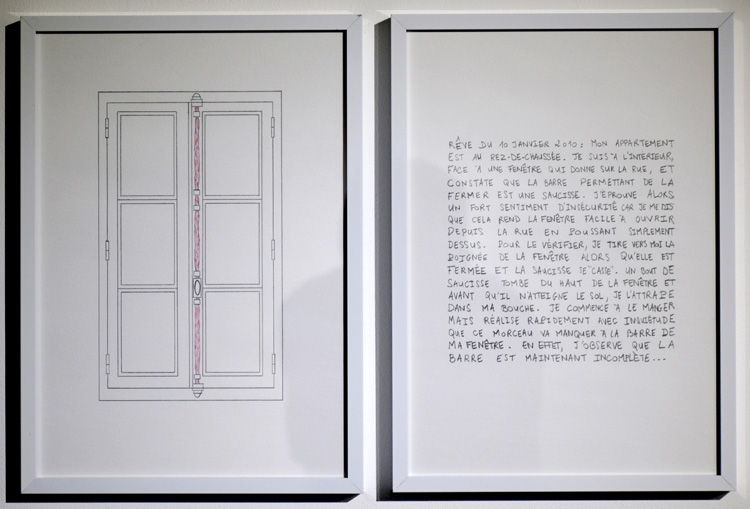 RÊVE DU 10 JANVIER 2010 : MON APPARTEMENT
EST AU REZ-DE-CHAUSSÉE. JE SUIS À L'INTÉRIEUR,
FACE À UNE FENÊTRE QUI DONNE SUR LA RUE, ET
CONSTATE QUE LA BARRE PERMETTANT DE LA
FERMER EST UNE SAUCISSE. J'ÉPROUVE ALORS
UN FORT SENTIMENT D'INSÉCURITÉ CAR JE ME DIS
QUE CELA REND LA FENÊTRE FACILE À OUVRIR
DEPUIS LA RUE EN POUSSANT SIMPLEMENT
DESSUS. POUR LE VÉRIFIER, JE TIRE VERS MOI LA
POIGNÉE DE LA FENÊTRE ALORS QU'ELLE EST
FERMÉE ET LA SAUCISSE SE "CASSE". UN BOUT DE
SAUCISSE TOMBE DU HAUT DE LA FENÊTRE ET
AVANT QU'IL N'ATTEIGNE LE SOL, JE L'ATTRAPE
DANS MA BOUCHE. JE COMMENCE À LE MANGER
MAIS RÉALISE RAPIDEMENT AVEC INQUIÉTUDE
QUE CE MORCEAU VA MANQUER À LA BARRE DE
MA FENÊTRE. EN EFFET, J'OBSERVE QUE LA
BARRE EST MAINTENANT INCOMPLÈTE...